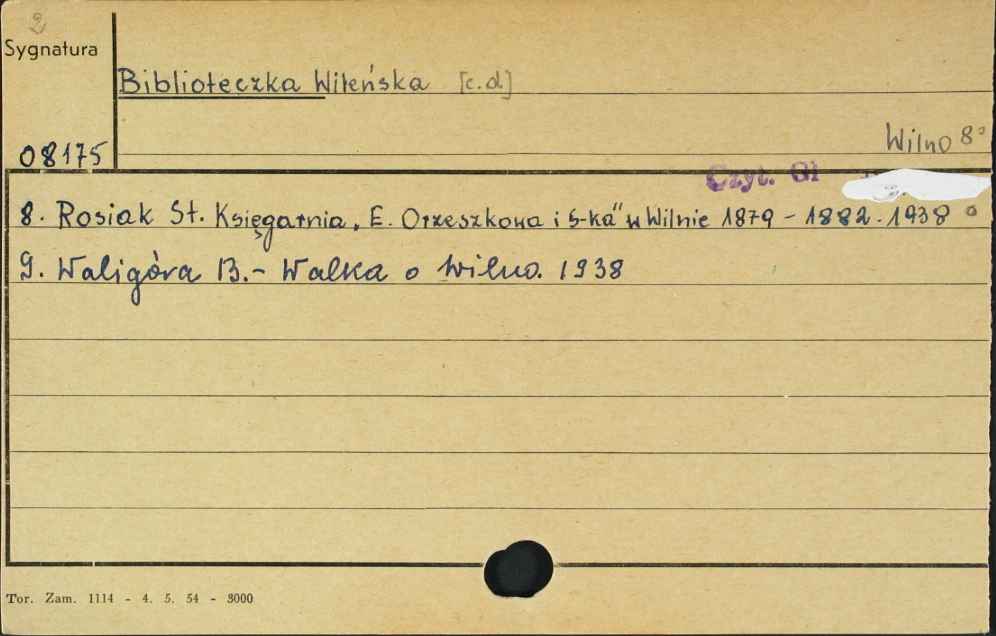 2
Sygnatura
Biblioteczka Wileńska [c.d]
08175
Wilno 8°
Czyt. Gł
8. Rosiak St. Księgarnia „E. Orzeszkowa i S-ka" w Wilnie 1879 - 1882. 1938
9. Waligóra B. - Walka o Wilno. 1938
Tor. Zam. 1114 - 4. 5. 54 - 3000